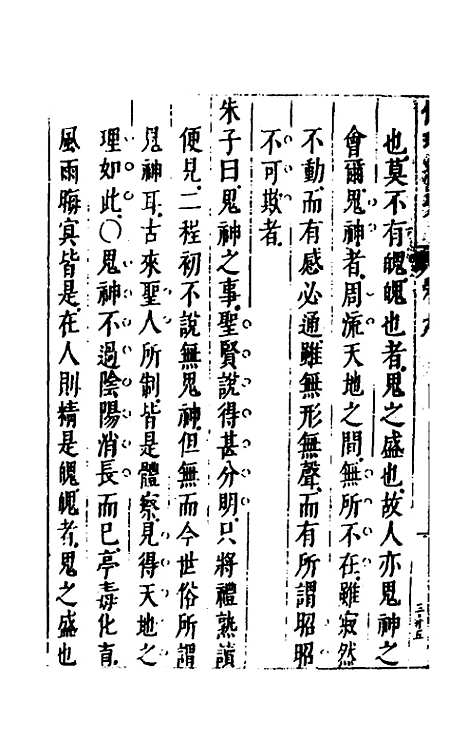 也莫不有魄魄也者鬼之盛也故人亦鬼神之
會爾鬼神者周流天地之間無所不在雖寂然
不動而有感必通雖無形無聲而有所謂昭昭
不可欺者
朱子曰鬼神之事聖賢說得甚分明只將禮熟讀
便見二程初不說無鬼神但無而今世俗所謂
鬼神耳古來聖人所制皆是體察見得天地之
理如此〇鬼神不過陰陽消長而已亭毒化育
風雨晦冥皆是在人則精是魄魄者鬼之盛也